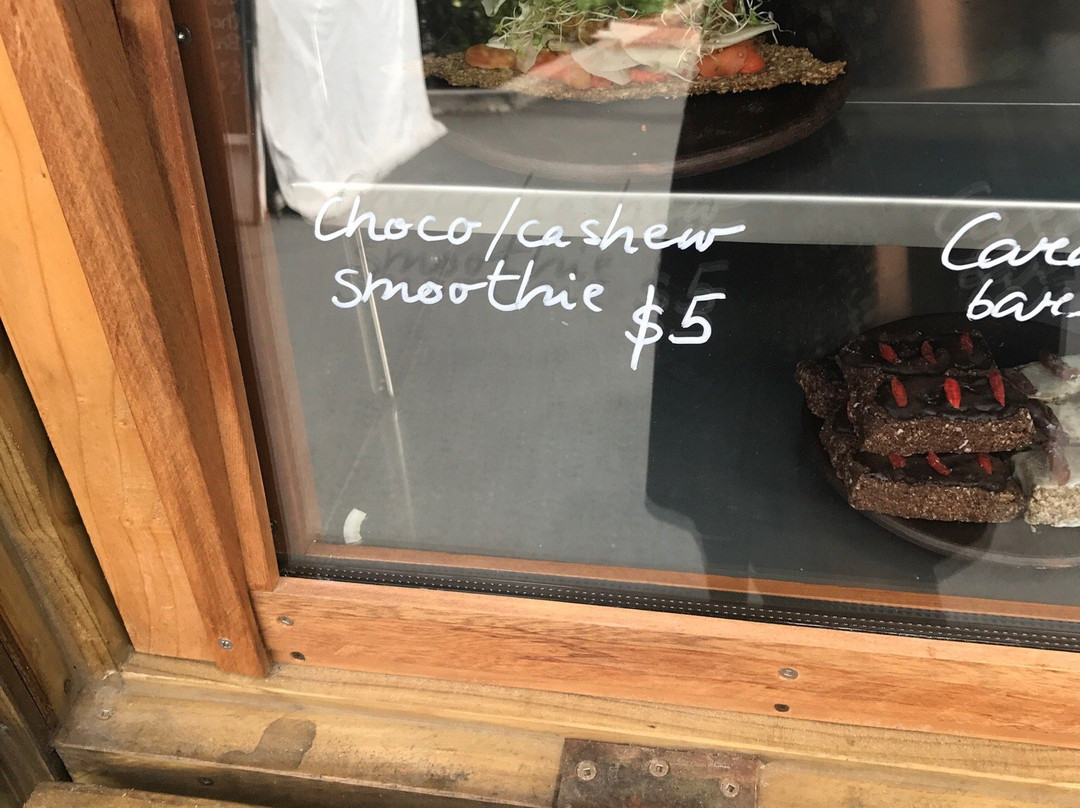 Choco/cashew
smoothie
$5
bars